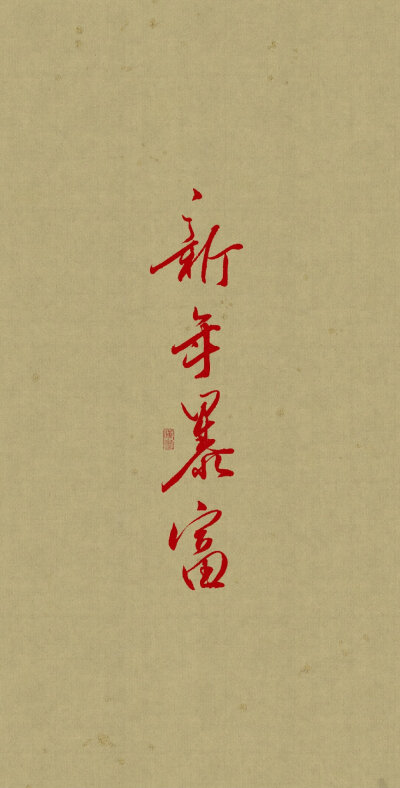 新年暴富